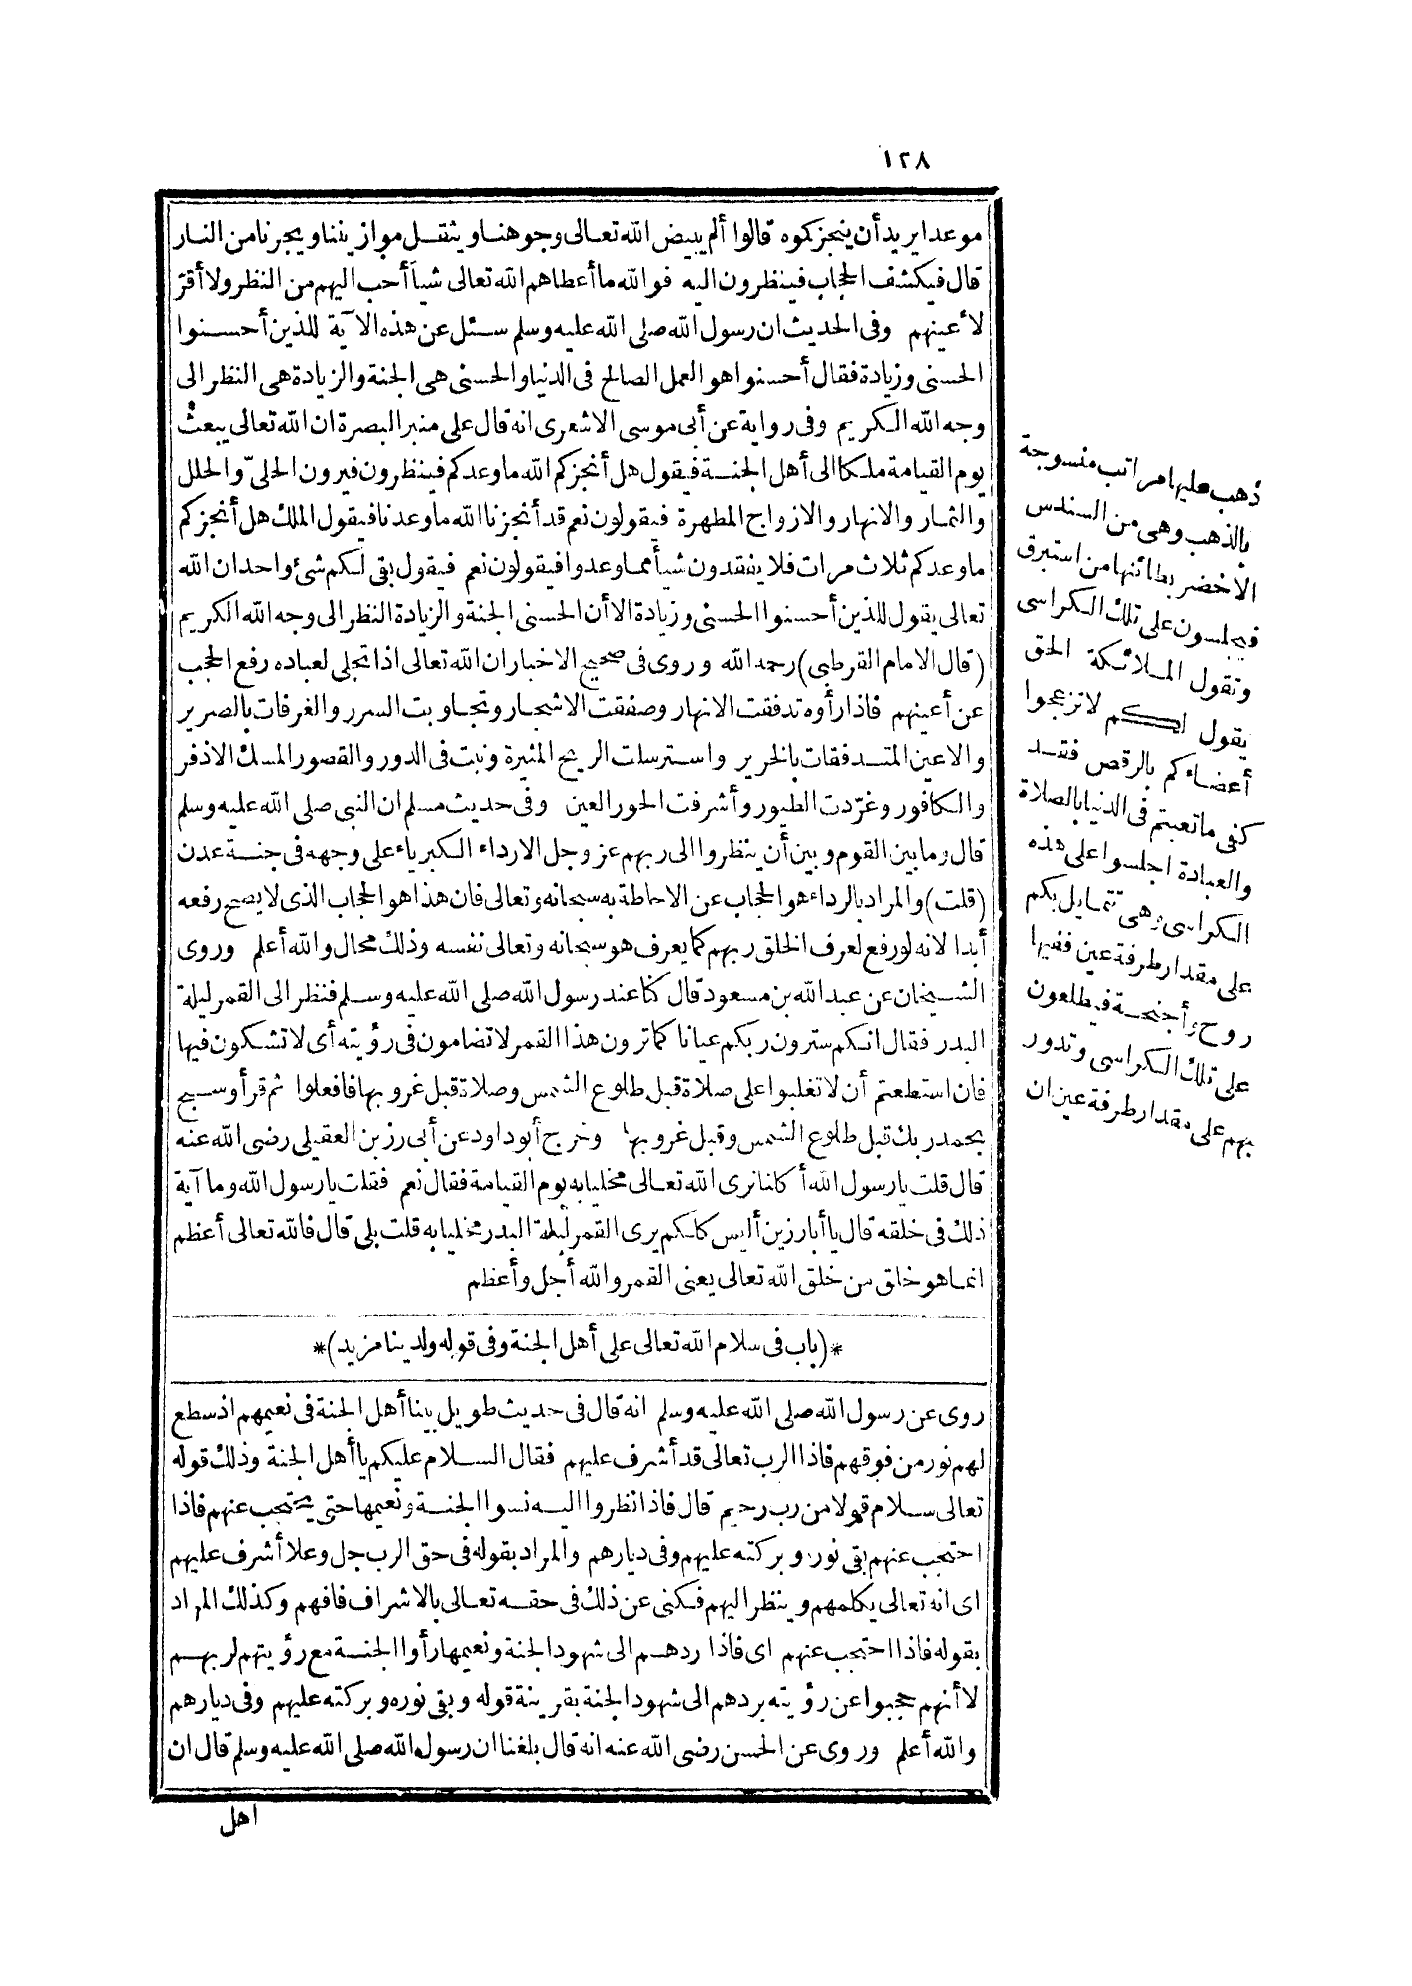 ١٢٨
موعدا يريد أن ينجزكموه قالوا ألم يبيض الله تعالى وجوهنا ويثقل موازيننا ويجرنا من النار
قال فيكشف الحجاب فينظرون اليه فوالله ما أعطاهم الله تعالى شيأ أحب اليهم من النظر ولا أقرّ
لأعينهم وفى الحديث ان رسول الله صلى الله عليه وسلم سئل عن هذه الآية للذين أحسنوا
الحسنى وزيادة فقال أحسنوا هو العمل الصالح فى الدنيا والحسنى هى الجنة والزيادة هى النظر الى
وجه الله الكريم وفى رواية عن أبى موسى الاشعرى انه قال على منبر البصرة ان الله تعالى يبعث
يوم القيامة ملكا الى أهل الجنة فيقول هل أنجزكم الله ما وعدكم فينظرون فيرون الحلىّ والحلل
والثمار والانهار والازواج المطهرة فيقولون نعم قد أنجزنا الله ما وعدنا فيقول الملك هل أنجزكم
ما وعدكم ثلاث مرات فلا يفقدون شيأ مما وعدوا فيقولون نعم فيقول بقى لكم شئ واحد ان الله
تعالى يقول للذين أحسنوا الحسنى وزيادة الا أن الحسنى الجنة والزيادة النظر الى وجه الله الكريم
(قال الامام القرطبى) رحمه الله وروى فى صحيح الاخبار ان الله تعالى اذا تجلى لعباده رفع الحجب
عن أعينهم فاذا رأوه تدفقت الانهار وصفقت الاشجار وتجاوبت السرر والغرفات بالصرير
والاعين المتدفقات بالخرير واسترسلت الريح المثيرة ونبت فى الدور والقصور المسك الاذفر
والكافور وغرّدت الطيور وأشرفت الحور العين وفى حديث مسلم ان النبى صلى الله عليه وسلم
قال وما بين القوم وبين أن ينظروا الى ربهم عز وجل الا رداء الكبرياء على وجهه فى جنة عدن
(قلت) والمراد بالرداء هو الحجاب عن الاحاطة به سبحانه وتعالى فان هذا هو الحجاب الذى لا يصح رفعه
أبدا لانه لو رفع لعرف الخلق ربهم كما يعرف هو سبحانه وتعالى نفسه وذلك محال والله أعلم وروى
الشيخان عن عبد الله بن مسعود قال كنا عند رسول الله صلى الله عليه وسلم فنظر الى القمر ليلة
البدر فقال انكم سترون ربكم عيانا كما ترون هذا القمر لا تضامون فى رؤيته أى لا تشكون فيها
فان استطعتم أن لا تغلبوا على صلاة قبل طلوع الشمس وصلاة قبل غروبها فافعلوا ثم قرأ وسبح
بحمد ربك قبل طلوع الشمس وقبل غروبها وخرج أبو داود عن أبى رزين العقيلى رضى الله عنه
قال قلت يا رسول الله أكلنا نرى الله تعالى مخليا به يوم القيامة فقال نعم فقلت يا رسول الله وما آية
ذلك فى خلقه قال يا أبا رزين أليس كلكم يرى القمر ليلة البدر مخليا به قلت بلى قال فالله تعالى أعظم
انما هو خلق من خلق الله تعالى يعنى القمر والله أجل وأعظم
*(باب فى سلام الله تعالى على أهل الجنة وفى قوله ولدينا مزيد)*
روى عن رسول الله صلى الله عليه وسلم انه قال فى حديث طويل بينا أهل الجنة فى نعيمهم اذ سطع
لهم نور من فوقهم فاذا الرب تعالى قد أشرف عليهم فقال السلام عليكم يا أهل الجنة وذلك قوله
تعالى سلام قولا من رب رحيم قال فاذا نظروا اليه نسوا الجنة ونعيمها حتى يحتجب عنهم فاذا
احتجب عنهم بقى نوره وبركته عليهم وفى ديارهم والمراد بقوله فى حق الرب جل وعلا أشرف عليهم
اى انه تعالى يكلمهم وينظر اليهم فكنى عن ذلك فى حقه تعالى بالاشراف فافهم وكذلك المراد
بقوله فاذا احتجب عنهم اى فاذا ردهم الى شهود الجنة ونعيمها رأوا الجنة مع رؤيتهم لربهم
لا أنهم حجبوا عن رؤيته بردهم الى شهود الجنة بقرينة قوله وبقى نوره وبركته عليهم وفى ديارهم
والله أعلم وروى عن الحسن رضى الله عنه انه قال بلغنا ان رسول الله صلى الله عليه وسلم قال ان
اهل
ذهب عليها مراتب منسوجة
بالذهب وهى من السندس
الاخضر بطائنها من استبرق
فيجلسون على تلك الكراسى
وتقول الملائكة الحق
يقول لكم لا تزعجوا
أعضاءكم بالرقص فقد
كفى ما تعبتم فى الدنيا بالصلاة
والعبادة اجلسوا على هذه
الكراسى وهى تتمايل بكم
على مقدار طرفة عين ففيها
روح وأجنحة فيطلعون
على تلك الكراسى وتدور
بهم على مقدار طرفة عين ان